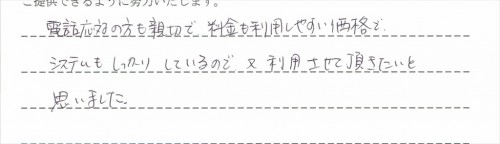 ご提供できるように努力いたします。
電話応対の方も親切で、料金も利用しやすい価格で、
システムもしっかりしているので又利用させて頂きたいと
思いました。